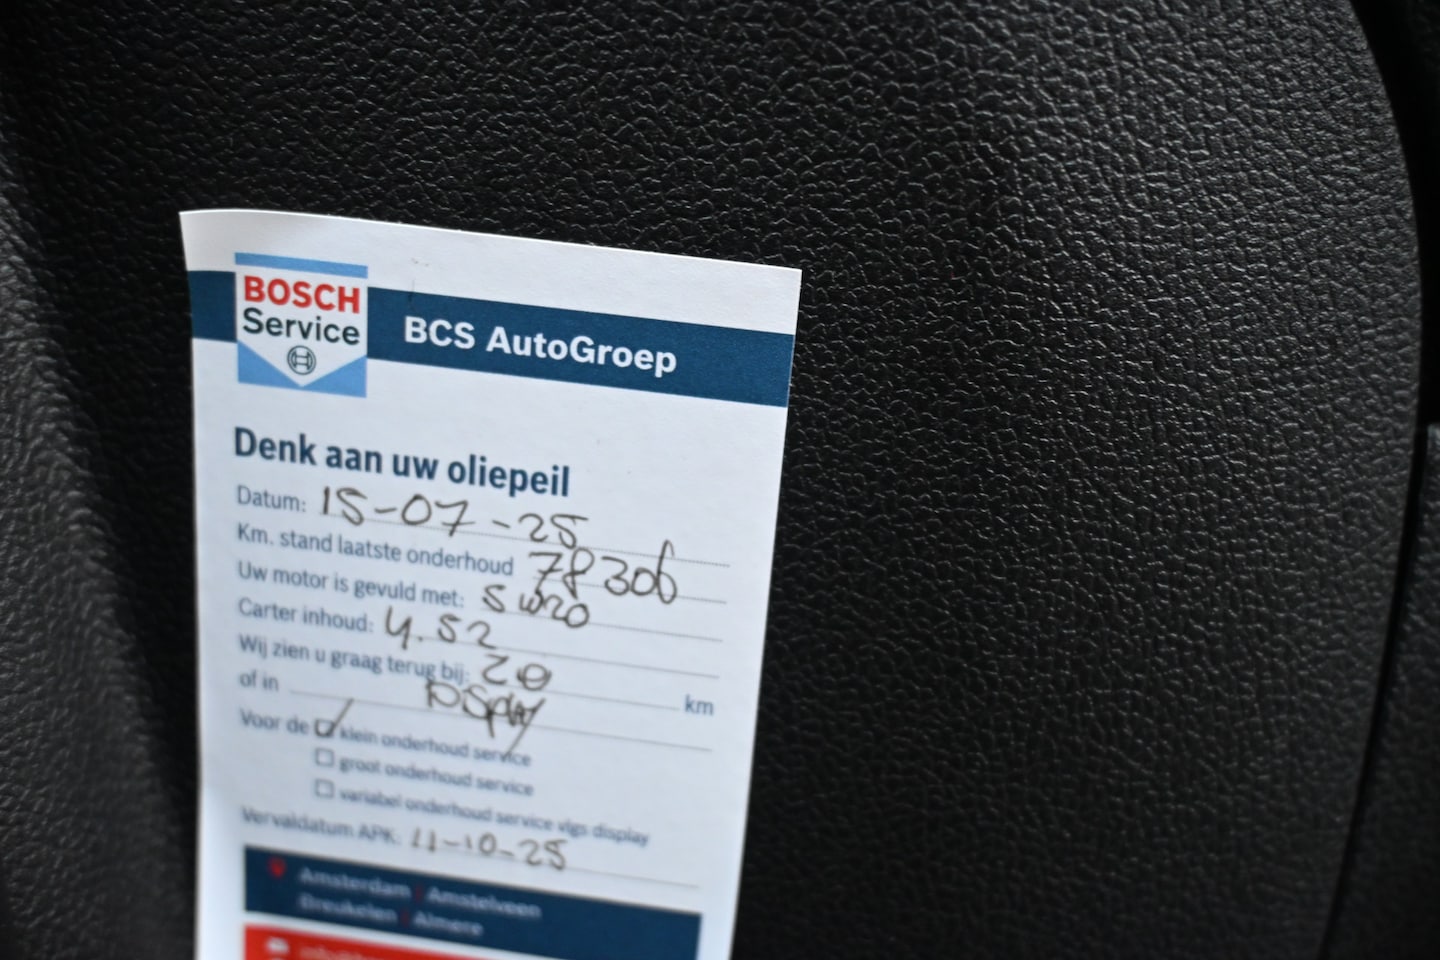 BOSCH
Service
BCS AutoGroep
Denk aan uw oliepeil
Datum: 15-07-25
Km. stand laatste onderhoud 78306
Uw motor is gevuld met: 5w20
Carter inhoud: 4.52
Wij zien u graag terug bij: km
of in
Voor de klein onderhoud service
groot onderhoud service
variabel onderhoud service vlgs display
Vervaldatum APK: 11-10-25
Amsterdam | Amstelveen
Breukelen | Almere